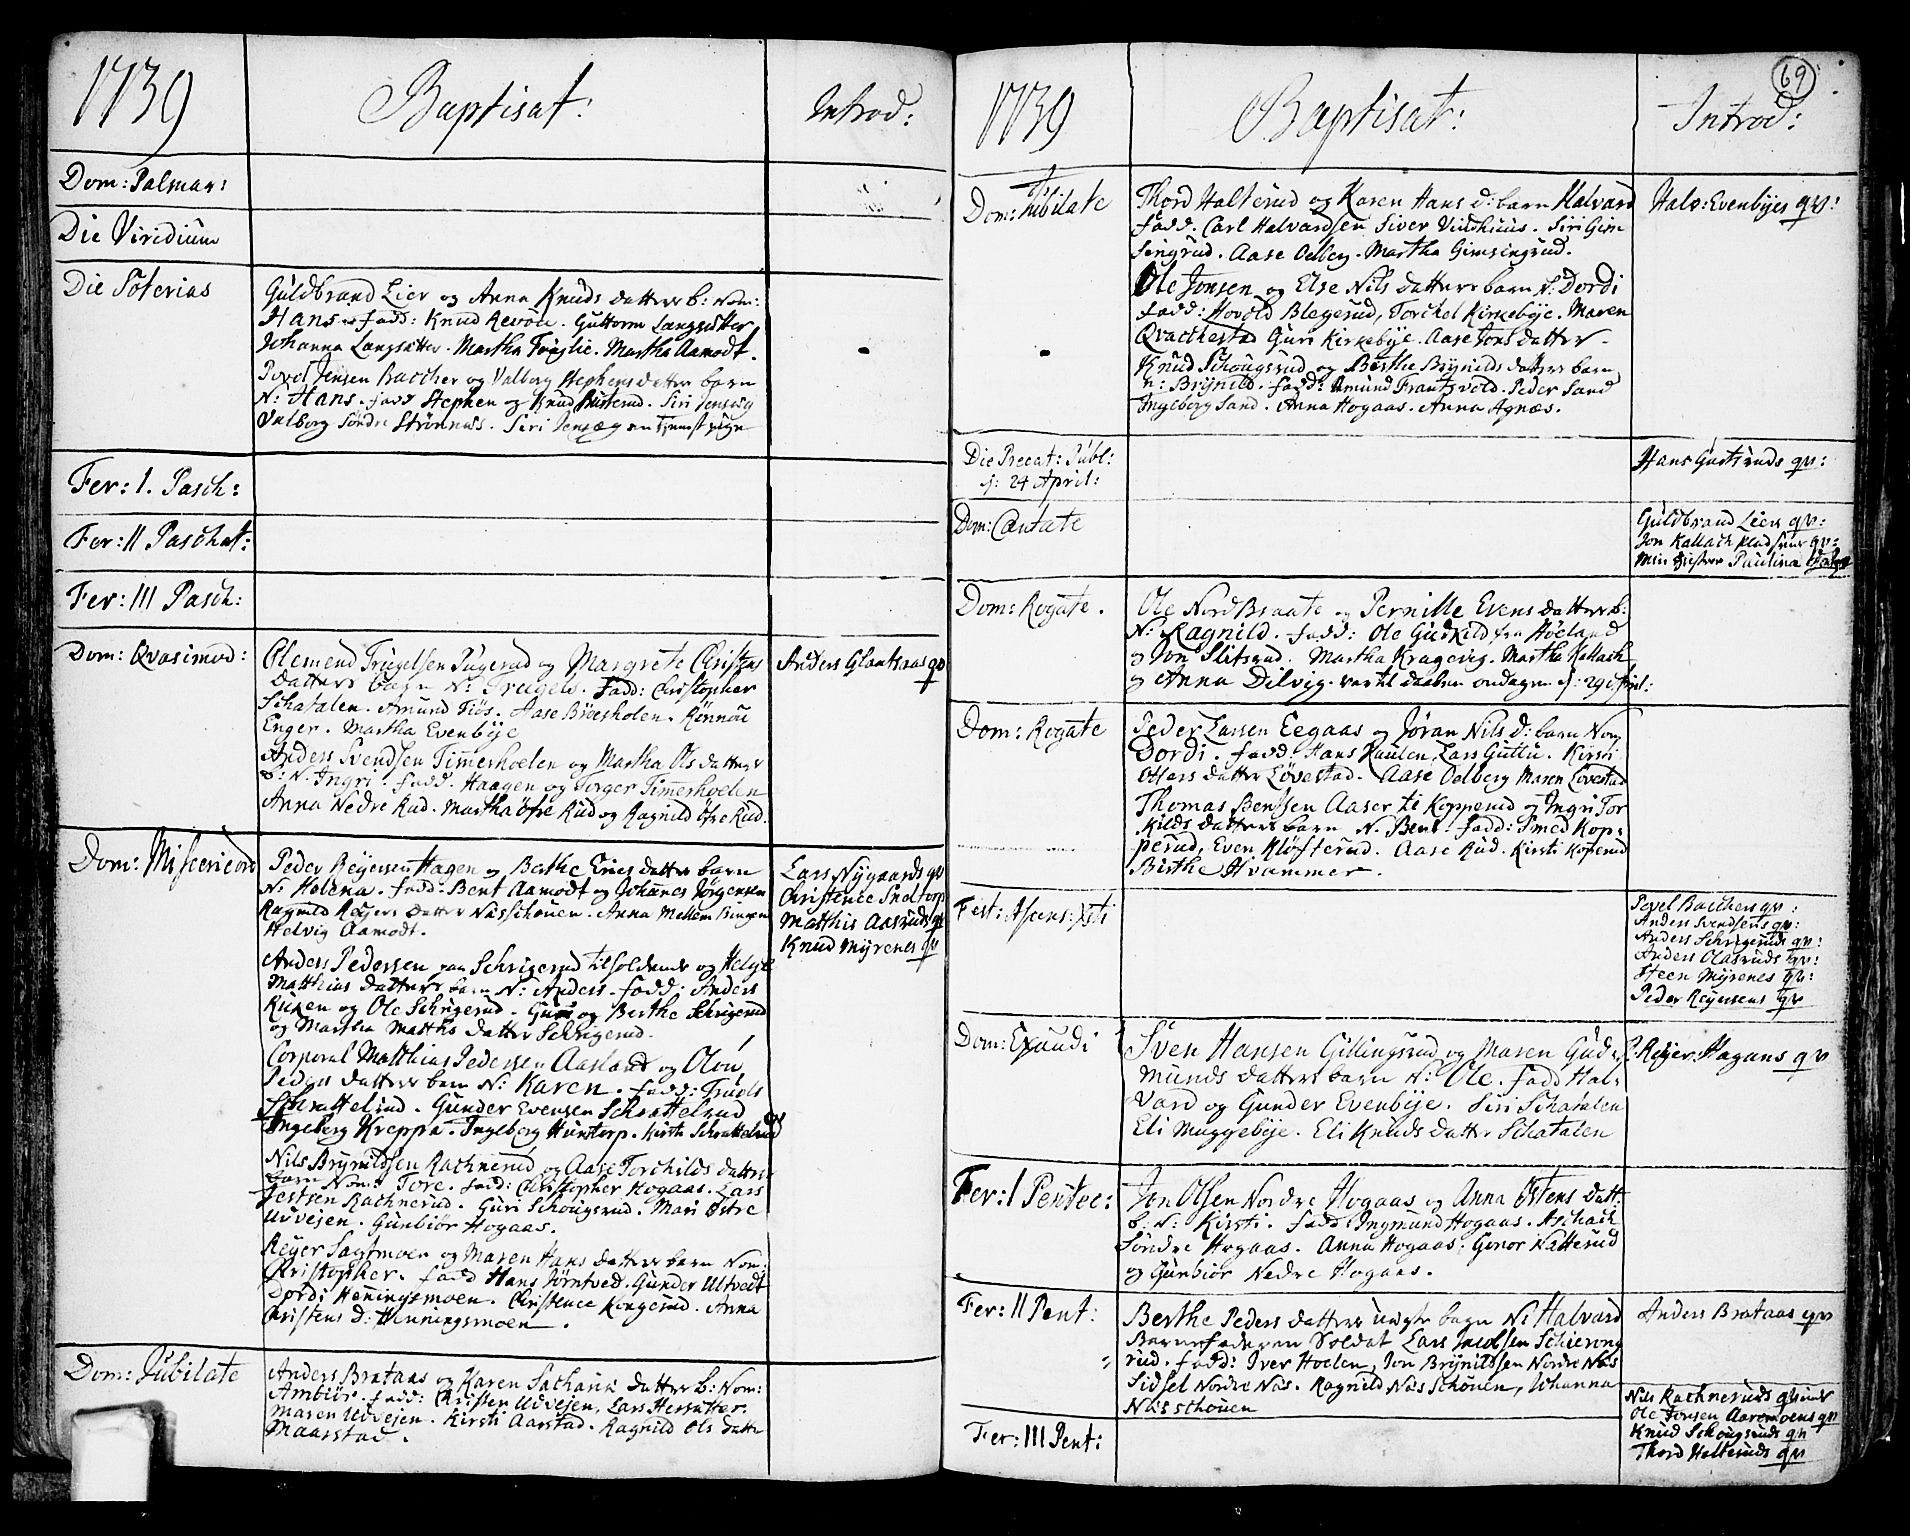 1739
Baptisat:
Introd:
Dom: Palmar:
Die Viridium
Die Soterias
Guldbrand Lier og Anna Knuds datters b: Nom:
Hans fadd: Knud Revou. Guttorm Langsætter
Johanna Langsætter. Martha Fuglie. Martha Aamodt.
Povel Jensen Bacher og Valborg Stephens datters barn
N: Hans. fadd Stephen og Knud Riiserud. Siri Jensæg
Valborg Söndre Strönnæs. Siri Jensæg en tienist pige
Fer: I. Pasch:
Fer: II Paschat:
Fer: III Pasch:
Dom: Qvasimod:
Clemend Trugelsen Pugerud og Margrete Christens
datters barn N: Trugels. Fadd: Christopher
Schatalen. Amund Fiös. Aase Bröesholen. Rönnou
Enger. Martha Evenbÿe
Anders Svendsen Timmeshoelen og Martha Ols datters
b: N. Ingri. fadd. Haagen og Torger Timmeshoelen
Anna Nedre Rud. Martha öfre Rud og Ragnild öfre Rud.
Anders Glenttras qv
Dom: Misericord
Peder Reÿersen Hagen og Berthe Erics datters barn
N: Helena. fadd: Bent Aamodt og Johanes Jörgensen
Ragnild Reÿers datter Næsschouen. Anna Mellem Bingen
Helvig Aamodt.
Anders Pedersen paa Schrigerud tilholdende og Helge
Matthias datters barn N: Anders. fadd: Anders
Kusen og Ole Schrigerud. Guri og Berthe Schrigerud
og Martha Matths datter Schrigerud.
Corporal Matthias Pedersen Aasland og Olou
Peders datters barn N: Karen. fadd: Truls
Schrattelrud. Gunder Evensen Schrattelrud
Ingeberg Kreppa. Ingeborg Huntorp. Kirsti Schrattelrud
Nils Brÿnildsen Rachnerud og Aase Torchilds datters
barn Nom: Tore. fadd: Christopher Hogaas. Lars
Jestsen Rachnerud. Guri Schougsrud. Mari Östre
Udvejen. Gunbiör Hogaas.
Reÿer Sagtmoen og Maren Hans datters barn Nom:
Christopher. fadd Hans Jörntved. Gunder Ultvedt
Dordi Heningsmoen. Christence Kongerud. Anna
Christens D: Henningsmoen.
Lars Nÿgaards qv
Christence Sneltorp
Matthis Aasruds qv
Knud Mÿrenes qv
Dom: Jubilate
Anders Brataas og Karen Sachari datters b: Nom:
Ambiör. fadd: Christen Udvejen, Lars Hersætter.
Maren Udvejen. Kirsti Aarstad. Ragnild Ols datter
Maarstad.
69
1739
Baptisat:
Introd:
Dom: Jubilate
Thord Halterud og Karen Hans d: barn Halvard
fadd. Carl Halvardsen Siver Vindhuus. Siri Gim
singrud. Aase Oelberg. Martha Gimsingrud.
Ole Jonsen og Else Nils datters barn N: Dordi
fadd: Hovold Blegerud, Torchel Kirkebÿe. Maren
Qvachestad Guri Kirkebÿe. Aase Jons datter.
Knud Schougsrud og Berthe Brÿnilds datters barn
n: Brÿnild. fadd: Amund Frautsvold. Peder Sand
Ingeborg Sand. Anna Hogaas. Anna Agnæs.
Halv: Evenbÿes qv:
Die Precat: Publ:
d: 24 April:
Hans Gustsruds qv:
Dom: Cantate
Guldbrand Liers qv:
Jon Kallach qv:
Min Paulina
Dom: Rogate.
Ole Nordbraate og Pernille Evens datters b:
N: Ragnild. fadd: Ole Gudkild fra Höeland
og Jon Slitsrud. Martha Kragevig. Martha Kallach
og Anna Dilvig. var til daaben ondagen d: 29 April:
Dom: Rogate
Peder Larsen Eegaas og Jöran Nils d: barn Nom
Dordi. fadd Hans Paulen, Lars Guttu. Kirsti
Olfers datter Lövestad. Aase Oelberg Maren Lövestad
Thomas Bentsen Aaser ti Kopperud og Ingri Tor
kilds datters barn N. Bent. fadd: Smed Kop-
perud, Even Klöfterud. Aase Rud. Kirsti Koperud
Birthe Hvammer.
Fest: Ascens: Xsti
Povel Bachers qv:
Anders Svendsens qv:
Anders Schrigeruds qv:
Anders Olasruds qv:
Steen Mÿrenes qv:
Peder Reÿersens qv
Dom: Exaudi
Sven Hansen Gillingsrud og Maren Gud-
munds datters barn N: Ole. fadd Hal-
vard og Gunder Evenbÿe. Siri Schatalen
Eli Muggebÿe. Eli Knuds datter Schatalen
Reÿer Hagans qv
Fer: I Pentec:
Jon Olsen Nordre Hogaas og Anna Östens datt:
b: N: Kirsti. fadd Ingmund Hogaas. Aschach
Söndre Hogaas. Anna Hogaas. Gunor Natterud
og Gunbiör Nedre Hogaas.
Fer: II Pent:
Berthe Peders datters uægte barn N: Halvard
Barnefaderen Soldat Lars Joelsen Schieveng
rud. fadd: Iver Hoelen, Jon Brÿnildsen Nordre Næs
Sidsel Nordre Næs. Ragnild Næs Schouen, Johanna
Næsschouen
Anders Brataas qv
Fer: III Pent:
Nils Rachneruds qvinde
Ole Jonsen Aaremoens qv
Knud Schougsruds qv
Thord Halteruds qv